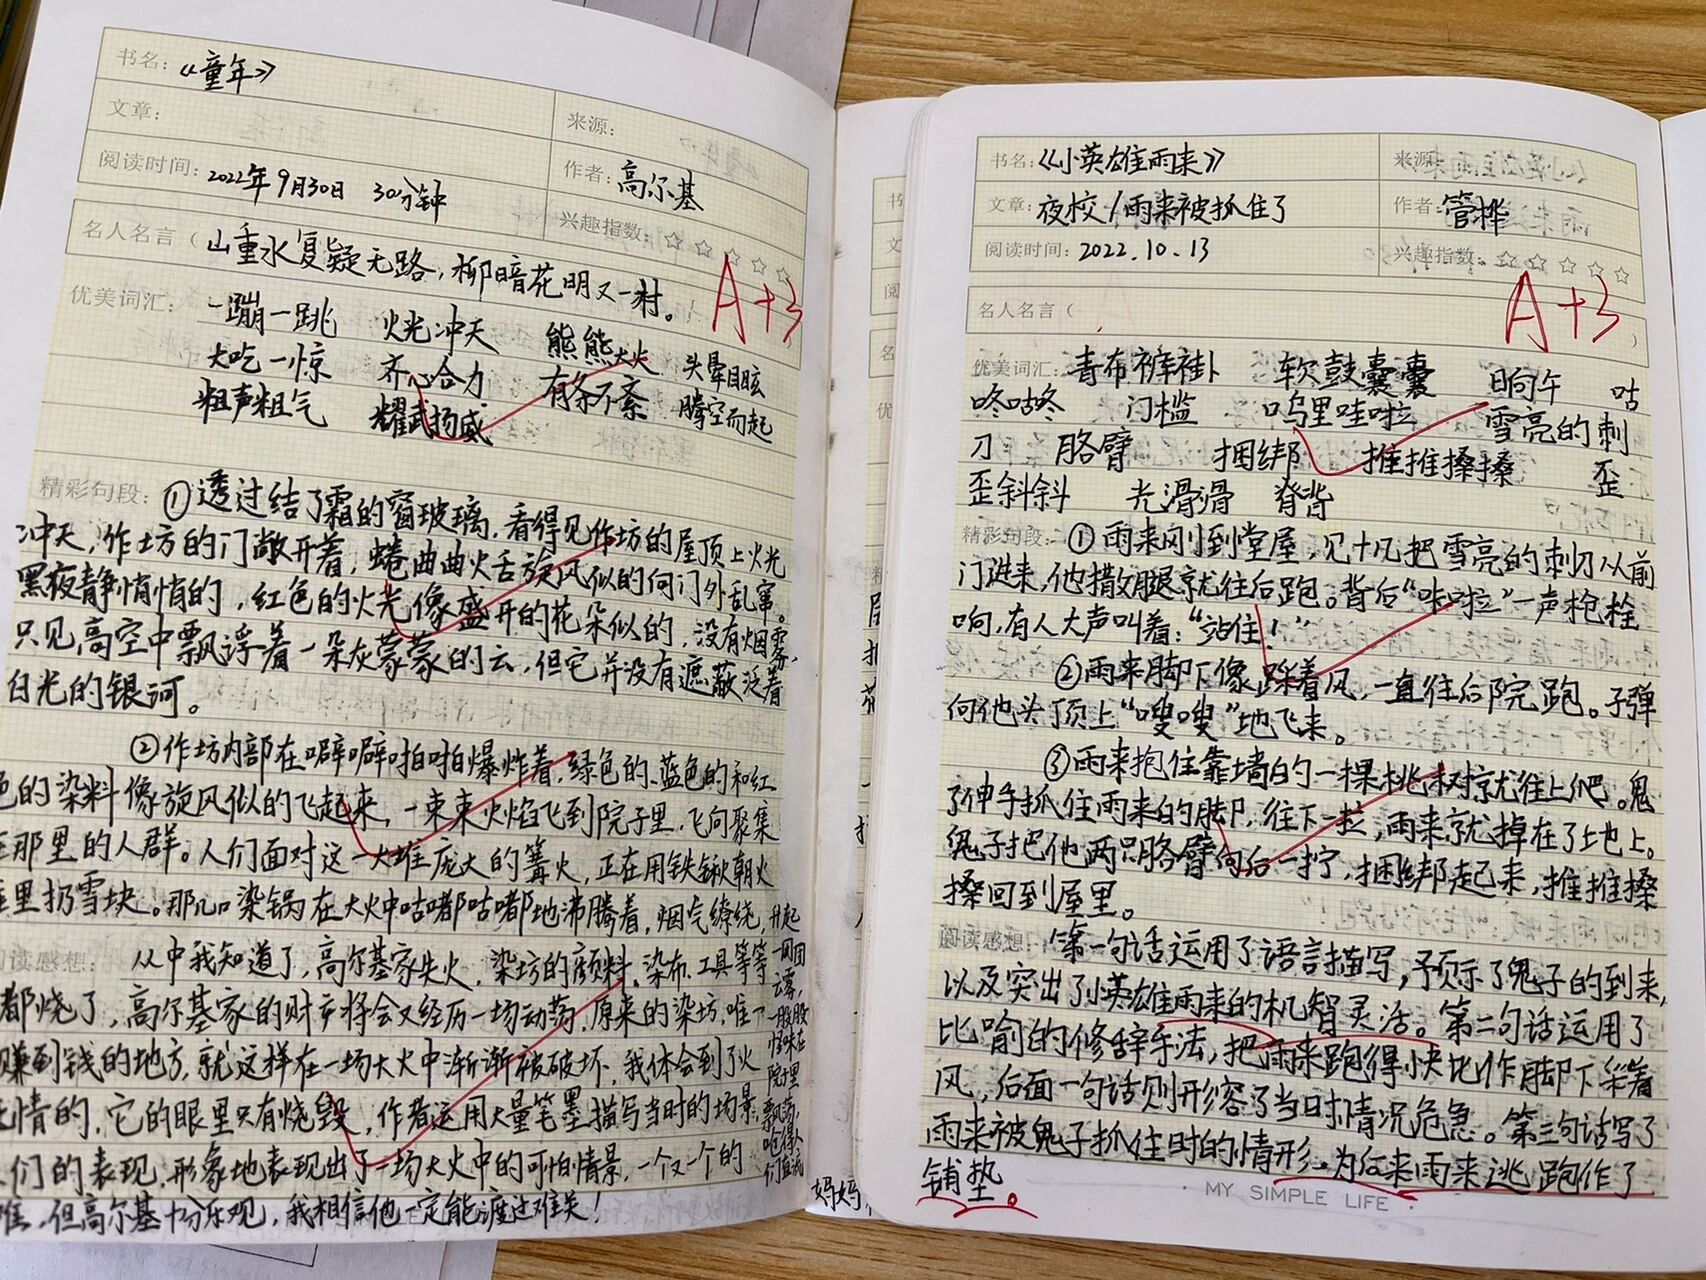 书名：《童年》
文章：
来源：
阅读时间：2022年9月30日 30分钟
作者：高尔基
兴趣指数：☆☆☆☆☆
名人名言（山重水复疑无路，柳暗花明又一村。
A+3
优美词汇：一蹦一跳 火光冲天 熊熊大火 头晕目眩
大吃一惊 齐心合力 有条不紊 腾空而起
粗声粗气 耀武扬威
精彩句段：①透过结了霜的窗玻璃，看得见作坊的屋顶上火光
冲天，作坊的门敞开着，蜷曲曲火舌旋风似的向门外乱窜。
黑夜静悄悄的，红色的火光像盛开的花朵似的，没有烟雾，
只见高空中飘浮着一朵灰蒙蒙的云，但它并没有遮蔽泛着
白光的银河。
②作坊内部在噼噼啪啪爆炸着，绿色的、蓝色的和红
色的染料像旋风似的飞起来，一束束火焰飞到院子里，飞向聚集
在那里的人群。人们面对这一大堆庞大的篝火，正在用铁锹朝火
里扔雪块。那几口染锅在大火中咕嘟咕嘟地沸腾着，烟气缭绕，升起
一团团
云雾，
一股股
怪味在
院子里
飘荡，
呛得人
们直流
阅读感想：从中我知道了，高尔基家失火，染坊的颜料、染布、工具等等
都烧了，高尔基家的财产将会又经历一场动荡，原来的染坊，唯一
赚到钱的地方，就这样在一场大火中渐渐被破坏，我体会到了火
情的，它的眼里只有烧毁，作者运用大量笔墨描写当时的场景，
人们的表现，形象地表现出了一场大火中的可怕情景，一个又一个的
难，但高尔基十分乐观，我相信他一定能渡过难关！
妈妈
书名：《小英雄雨来》
来源：
文章：夜校/雨来被抓住了
作者：管桦
阅读时间：2022.10.13
兴趣指数：☆☆☆☆☆
名人名言（ ）
A+3
优美词汇：青布裤褂 软鼓囊囊 日向午 咕
咚咕咚 门槛 呜里哇啦 雪亮的刺
刀 胳臂 捆绑 推推搡搡 歪
歪斜斜 光滑滑 脊背
精彩句段：①雨来刚到堂屋，见十几把雪亮的刺刀从前
门进来，他撒腿就往后跑。背后“咔啦”一声枪栓
响，有人大声叫着：“站住！”
②雨来脚下像踩着风，一直往后院跑。子弹
向他头顶上“嗖嗖”地飞来。
③雨来抱住靠墙的一棵桃树就往上爬。鬼
了伸手抓住雨来的脚，往下一拉，雨来就掉在了地上。
鬼子把他两只胳臂向后一拧，捆绑起来，推推搡
搡回到屋里。
阅读感想：第一句话运用了语言描写，预示了鬼子的到来，
以及突出了小英雄雨来的机智灵活。第二句话运用了
比喻的修辞手法，把雨来跑得快比作脚下踩着
风，后面一句话则形容了当时情况危急。第三句话写了
雨来被鬼子抓住时的情形，为后来雨来逃跑作了
铺垫。
MY SIMPLE LIFE